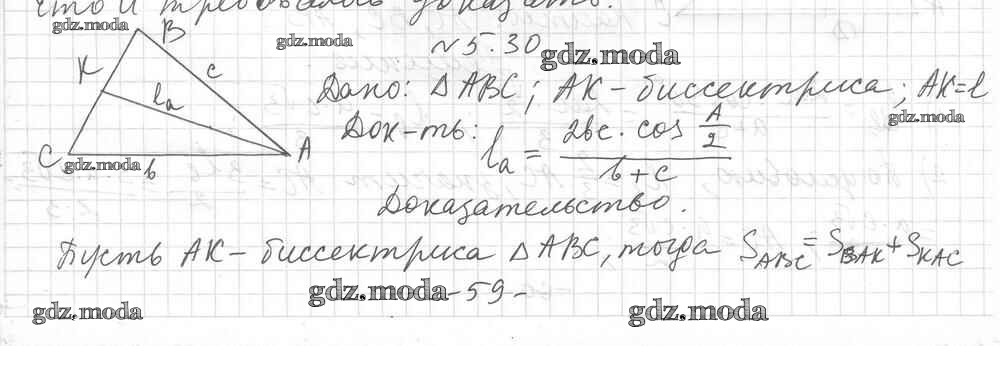 что и требовалось доказать.
gdz.moda
B
gdz.moda
№5.30
gdz.moda
K
c
lₐ
Дано: △ABC; AK - биссектриса; AK = l
Док-ть: lₐ = 2bc · cos A/2 / b+c
gdz.moda
C
A
gdz.moda
b
Доказательство.
Пусть AK - биссектриса △ABC, тогда S_ABC = S_BAK + S_KAC
gdz.moda
gdz.moda
-59-
gdz.moda